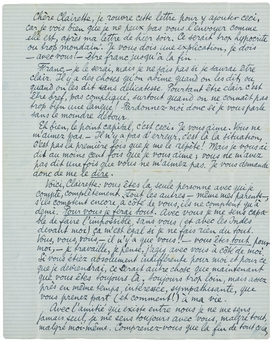 Chère Clairette, je rouvre cette lettre pour y ajouter ceci,
car je vois bien que je ne peux pas vous l'envoyer comme
elle est, après ma lettre de hier soir. Ce serait trop hypocrite
ou trop mondain. Je vous dois une explication, je dois
— avec vous! — être franc jusqu'à la fin.
Franc — je le serai, mais je ne sais pas si je saurai être
clair. Il y a des choses qu'on abîme quand on les dit, ou
quand on les dit sans délicatesse. Pourtant être clair c'est
être bref, pas compliqué, surtout quand on ne connaît pas
trop bien une langue! Pardonnez-moi donc si je vous parle
sans le moindre détour.
Eh bien, le point capital, c'est ceci: Je vous aime. Vous ne
m'aimez pas. — Il n'y a pas d'
c'est la situation,
c'est pas la première fois que je me le répète! Mais je vous ai
dit au moins cent fois que je vous aime; vous ne m'avez
pas dit une fois que vous ne m'aimez pas. Je vous demande
donc de me le dire.
Voici, Clairette: vous êtes la seule personne avec qui je
compte, complètement. Tous les autres — même mes parents —
s'ils comptent encore, à côté de vous, ils ne comptent qu'à
demi. Tous vous je
Avec vous je me sens capable
de faire l'impossible; sans vous, et avec les Indes
devant moi, ça m'est égal si je ne fais rien du tout.
Vous, vous, vous — il n'y a que vous! — vous êtes tout pour
moi; — je travaille, je pense, j'
avec vous à côté de moi.
Si vous étiez absolument indifférente pour moi et pour ce
que je deviendrai, ce serait autre chose que maintenant
que vous êtes toujours là, toujours trop loin, mais avec
près en même temps, intéressée, sympathisante, que
vous prenez part (et comment!) à ma vie.
Avec l'amitié que existe entre nous je ne me sens
jamais seul, je me sens toujours avec vous, malgré tout,
malgré moi-même. Comprenez-vous que la fin de tout ça